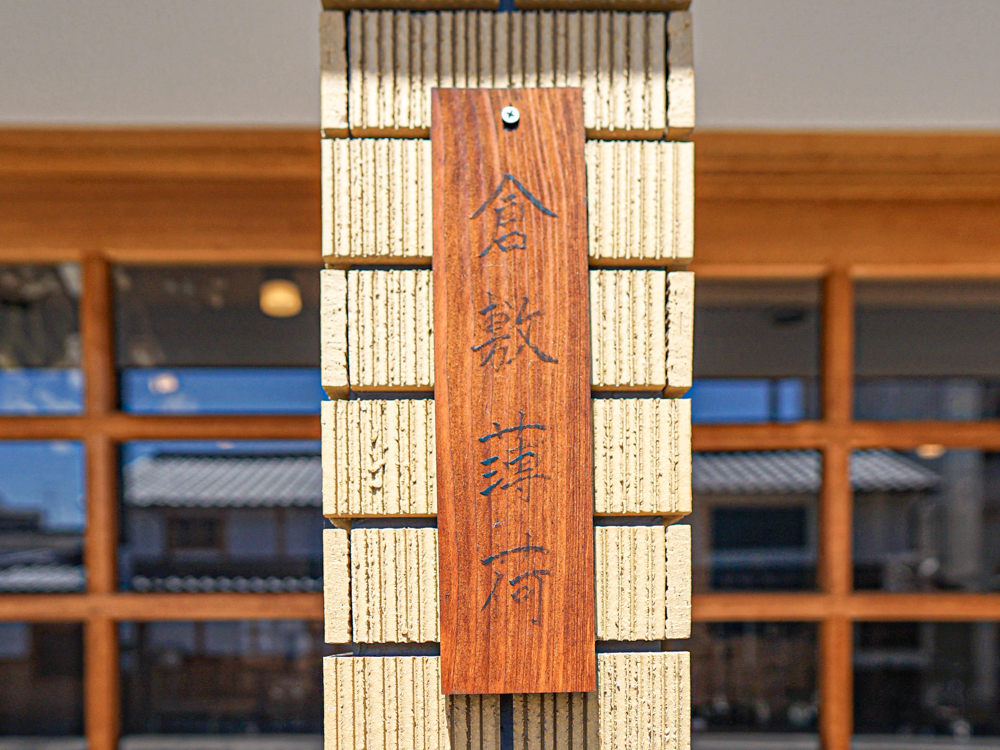 倉敷薄荷